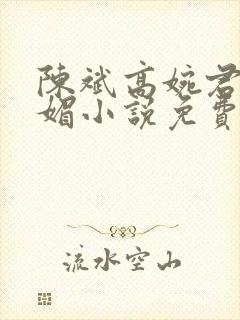 陳斌高婉君
媚小說免費
流水空山